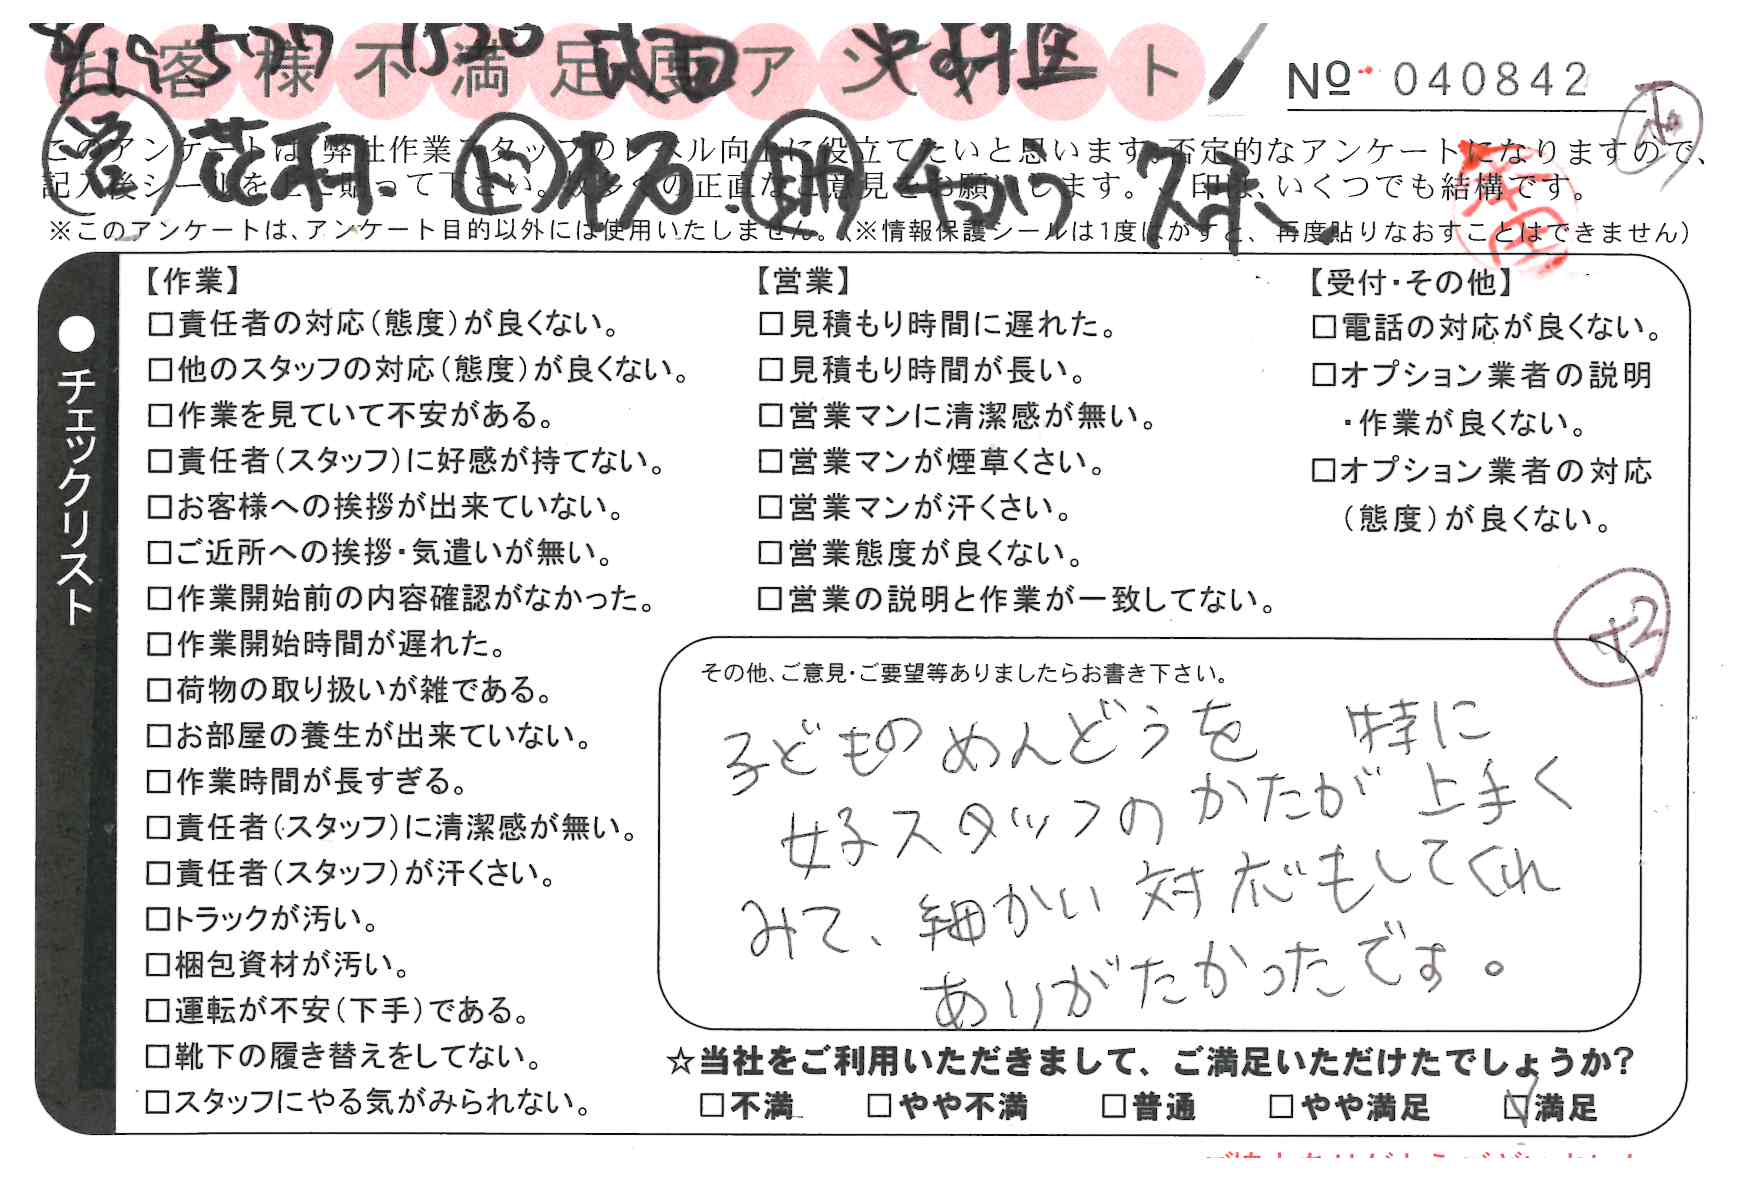 お客様不満足度アンケート
№ 040842
このアンケートは、弊社作業スタッフのレベル向上に役立てたいと思います。否定的なアンケートになりますので、
記入後シールを上に貼って下さい。数多くの正直なご意見をお願いします。✓印は、いくつでも結構です。
※このアンケートは、アンケート目的以外には使用いたしません。(※情報保護シールは1度はがすと、再度貼りなおすことはできません)
●チェックリスト
【作業】
□責任者の対応(態度)が良くない。
□他のスタッフの対応(態度)が良くない。
□作業を見ていて不安がある。
□責任者(スタッフ)に好感が持てない。
□お客様への挨拶が出来ていない。
□ご近所への挨拶・気遣いが無い。
□作業開始前の内容確認がなかった。
□作業開始時間が遅れた。
□荷物の取り扱いが雑である。
□お部屋の養生が出来ていない。
□作業時間が長すぎる。
□責任者(スタッフ)に清潔感が無い。
□責任者(スタッフ)が汗くさい。
□トラックが汚い。
□梱包資材が汚い。
□運転が不安(下手)である。
□靴下の履き替えをしてない。
□スタッフにやる気がみられない。
【営業】
□見積もり時間に遅れた。
□見積もり時間が長い。
□営業マンに清潔感が無い。
□営業マンが煙草くさい。
□営業マンが汗くさい。
□営業態度が良くない。
□営業の説明と作業が一致してない。
【受付・その他】
□電話の対応が良くない。
□オプション業者の説明
・作業が良くない。
□オプション業者の対応
(態度)が良くない。
+2
その他、ご意見・ご要望等ありましたらお書き下さい。
子どものめんどうを 特に
女子スタッフのかたが上手く
みて、細かい対応もしてくれ
ありがたかったです。
☆当社をご利用いただきまして、ご満足いただけたでしょうか?
□不満 □やや不満 □普通 □やや満足 ☑満足